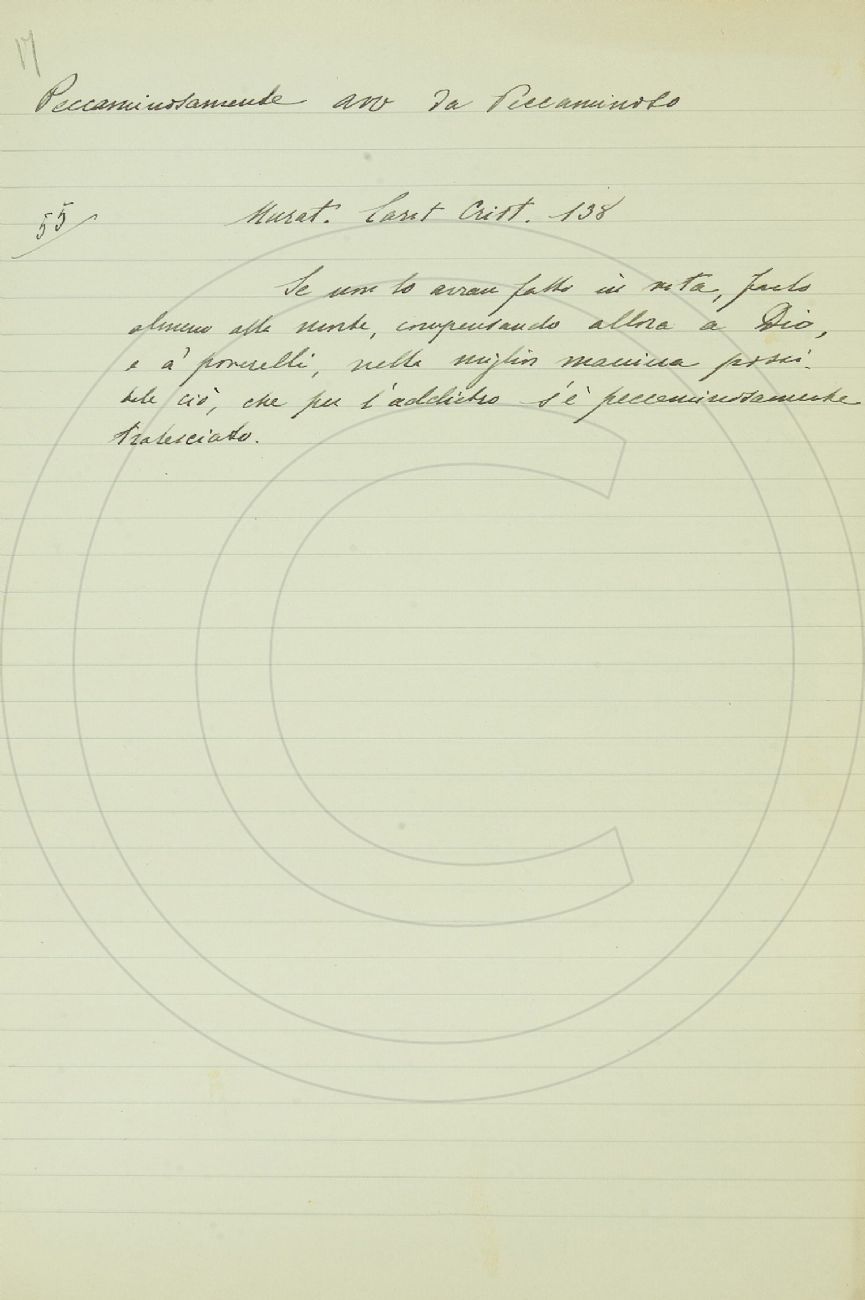 17
Peccaminosamente avv da Peccaminoso
55
Murat. Carit Crist. 138
Se non lo avran fatto in vita, farlo
almeno alla morte, compensando allora a Dio,
e a' poverelli, nella miglior maniera possi-
bile ciò, che per l'addietro s'è peccaminosamente
tralasciato.